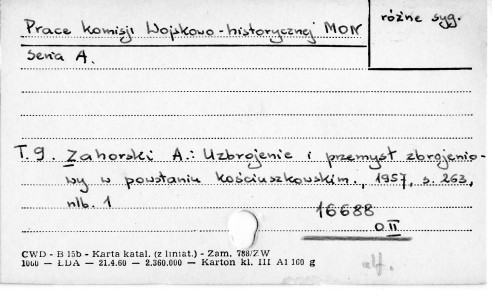 Prace Komisji Wojskowo-historycznej MON
różne syg.
Seria A.
T. 9. Zahorski A.: Uzbrojenie i przemysł zbrojenio-
wy w powstaniu kościuszkowskim., 1957, s. 263,
nlb. 1
16688
O II
CWD - B 15b - Karta katal. (z liniat.) - Zam. 788/ZW
1060 — ŁDA — 21.4.60 — 2.360.000 — Karton kl. III A1 160 g